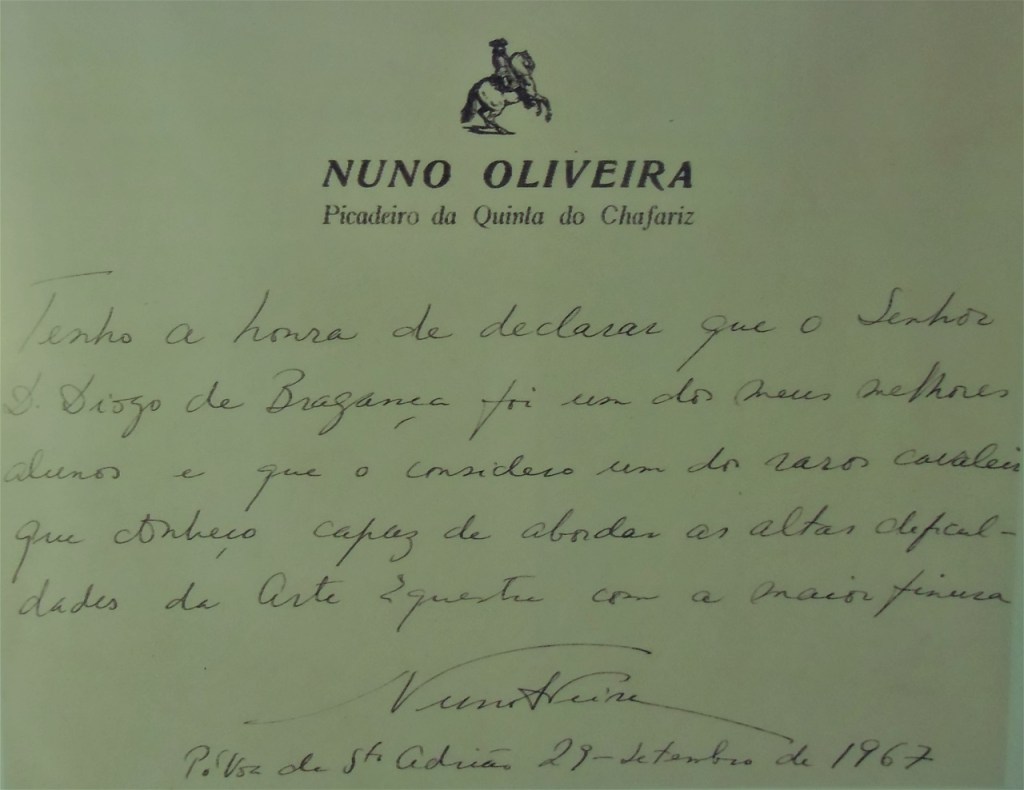 NUNO OLIVEIRA
Picadeiro da Quinta do Chafariz
Tenho a honra de declarar que o Senhor
D. Diogo de Bragança foi um dos meus melhores
alunos e que o considero um dos raros cavaleir
que conheço capaz de abordar as altas dificul-
dades da Arte Equestre com a maior finura
Nuno Oliveira
Póvoa de Stº Adrião 29-Setembro de 1967